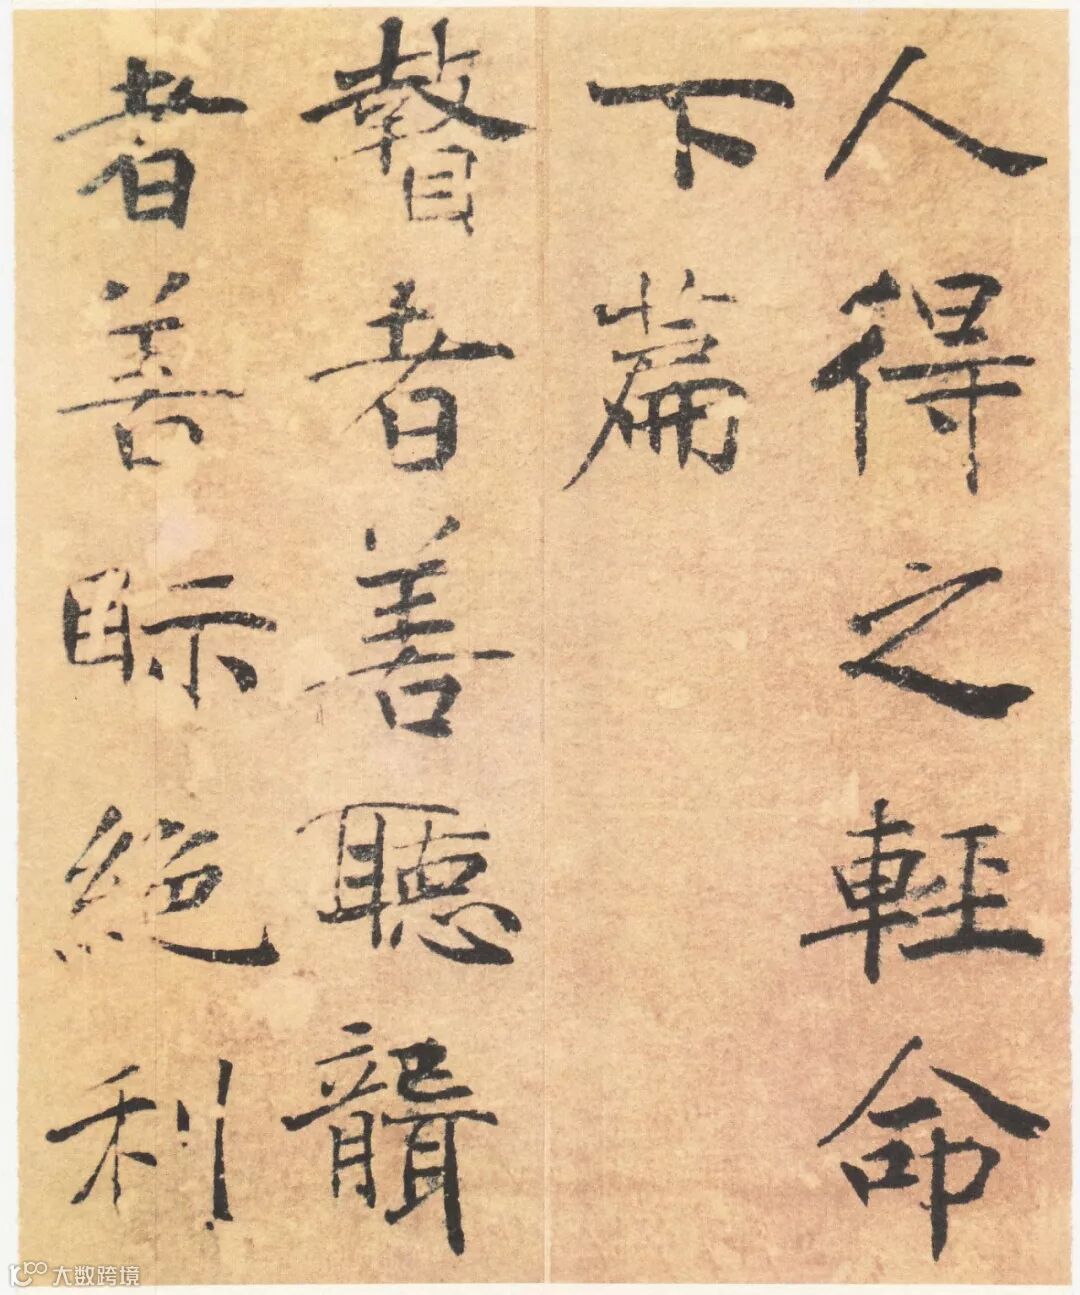 人得之輕命
下篇
瞽者善聽聾
者善眎絕利
大数跨境